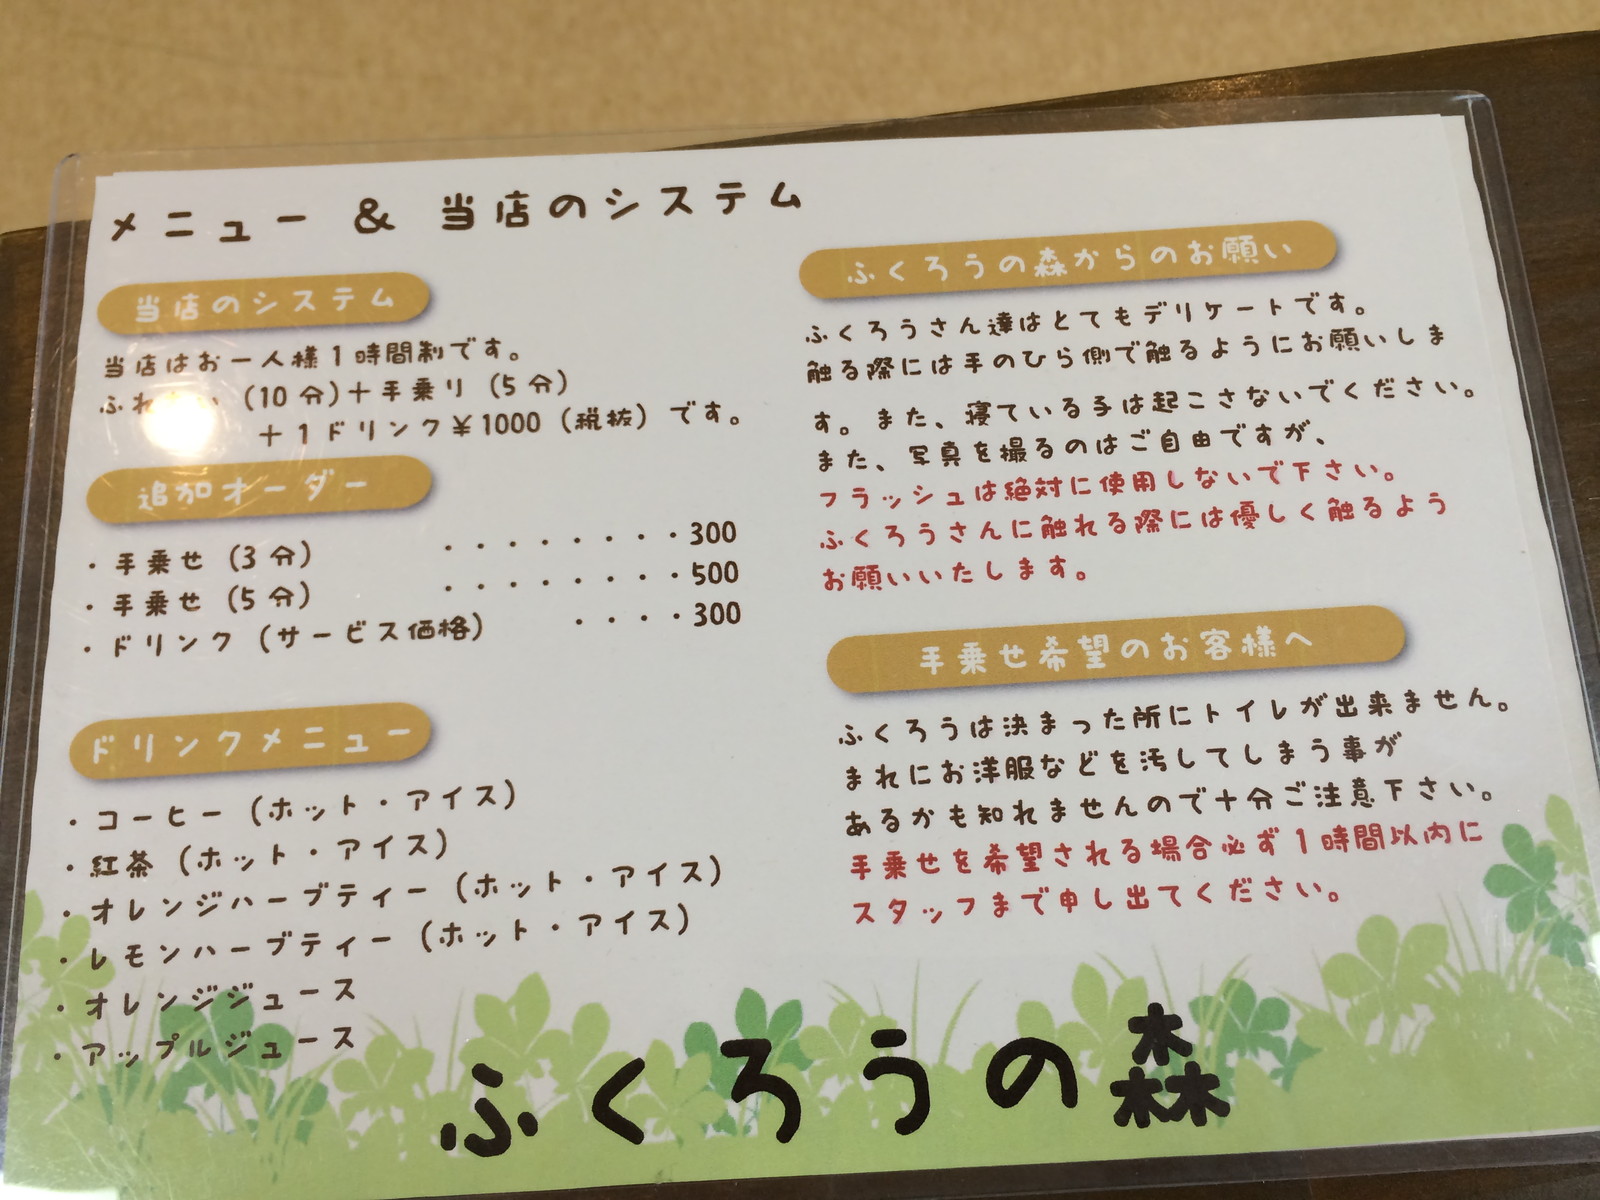 メニュー & 当店のシステム
当店のシステム
当店はお一人様1時間制です。
ふれ (10分)+手乗り (5分)
+1ドリンク¥1000 (税抜) です。
追加オーダー
・手乗せ (3分) ・・・・・・・・300
・手乗せ (5分) ・・・・・・・・500
・ドリンク (サービス価格) ・・・・300
ドリンクメニュー
・コーヒー (ホット・アイス)
・紅茶 (ホット・アイス)
・オレンジハーブティー (ホット・アイス)
・レモンハーブティー (ホット・アイス)
・オレンジジュース
・アップルジュース
ふくろうの森からのお願い
ふくろうさん達はとてもデリケートです。
触る際には手のひら側で触るようにお願いしま
す。また、寝ている子は起こさないでください。
また、写真を撮るのはご自由ですが、
フラッシュは絶対に使用しないで下さい。
ふくろうさんに触れる際には優しく触るよう
お願いいたします。
手乗せ希望のお客様へ
ふくろうは決まった所にトイレが出来ません。
まれにお洋服などを汚してしまう事が
あるかも知れませんので十分ご注意下さい。
手乗せを希望される場合必ず1時間以内に
スタッフまで申し出てください。
ふくろうの森